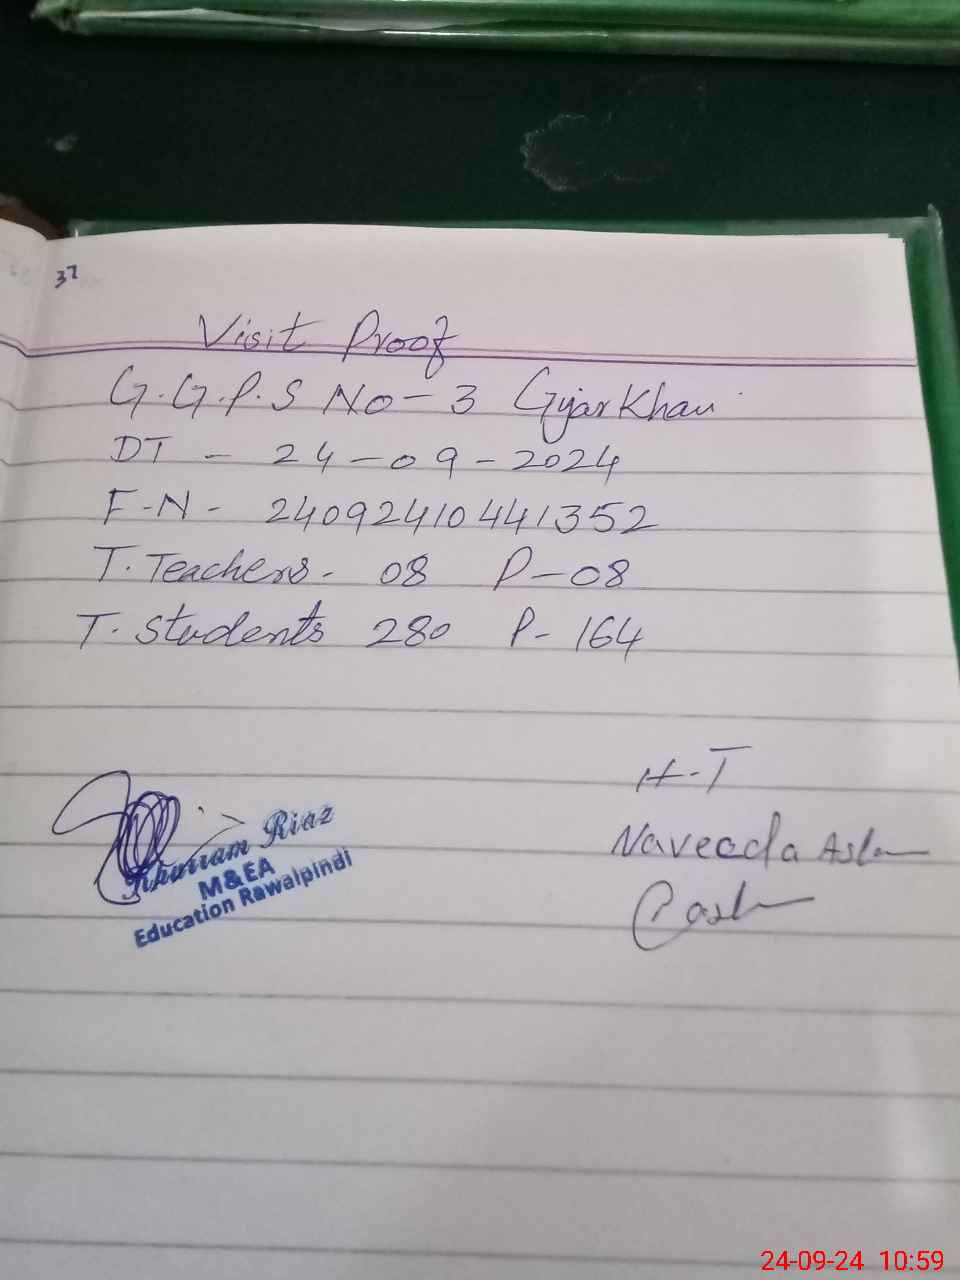 37
Visit Proof
G.G.P.S No-3 GujarKhan
DT - 24-09-2024
F-N- 24092410441352
T. Teachers - 08 P-08
T. Students 280 P-164
H-T
Naveeda Aslam
Khurram Riaz
M&EA
Education Rawalpindi
24-09-24 10:59